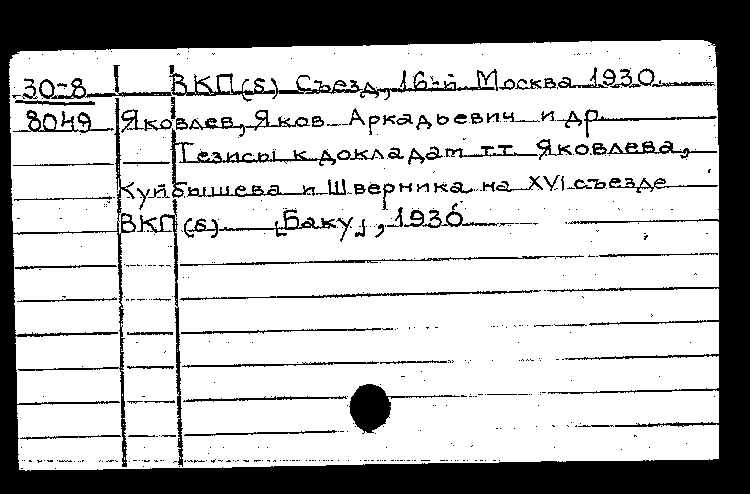 30-8 ВКП(б) Съезд, 16-й Москва 1930.
8049 Яковлев, Яков Аркадьевич и др.
Тезисы к докладам т.т. Яковлева,
Куйбышева и Шверника на XVI съезде
ВКП(б) [Баку], 1930